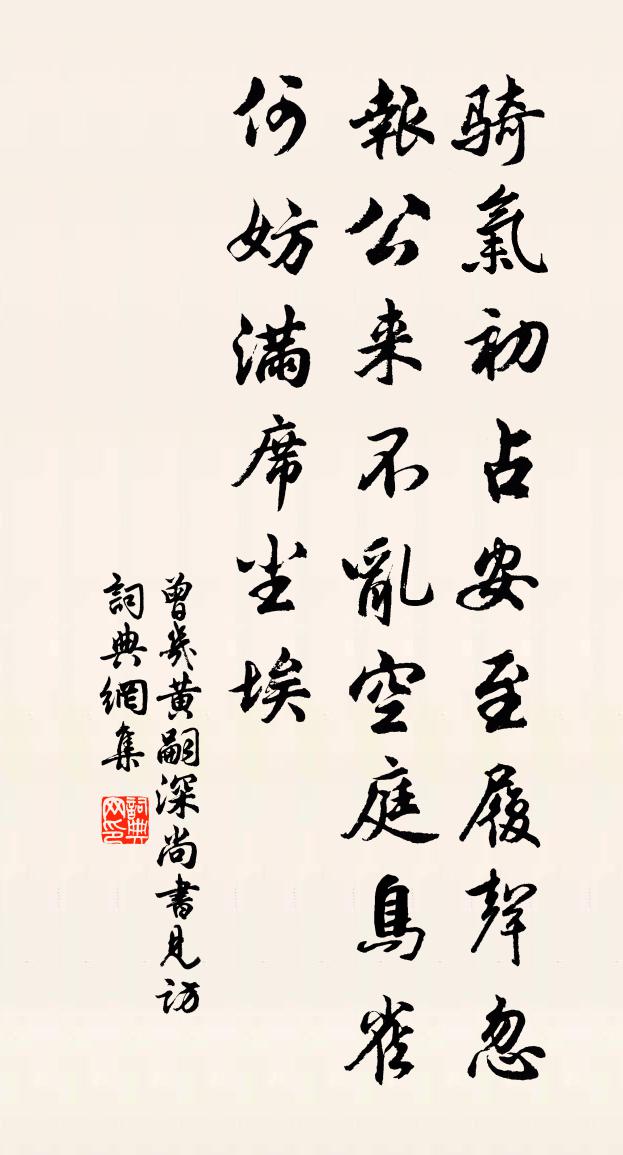 騎氣初占安至履聲忽
報公来不亂空庭鳥雀
何妨滿席尘埃
曾幾黄嗣深尚書見訪
詞典網集
詞典
网印